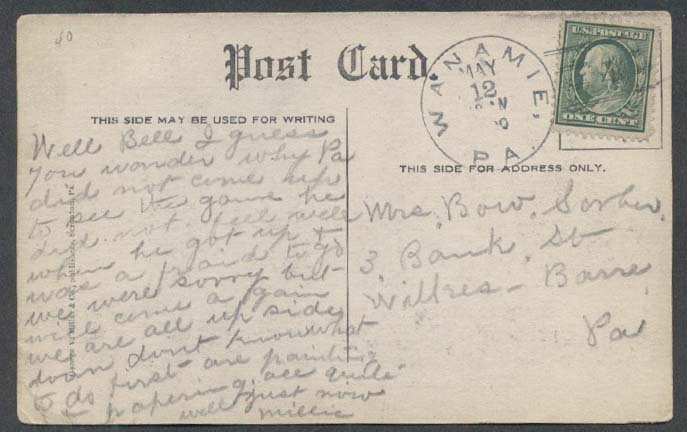 Post Card.
THIS SIDE MAY BE USED FOR WRITING
THIS SIDE FOR ADDRESS ONLY.
WANAMIE, PA.
MAY
12
U.S. POSTAGE
ONE CENT
Well Bell I guess
you wonder why Pa
did not come up
to see the game he
did not feel well
when he got up &
was afraid to go
we were sorry but
will come again
we are all up side
down dont know what
to do first are painting
& papering all quite
well just now
Millie
Mrs. Bow. Sorber.
3. Bank. St
Wilkes-Barre
Pa